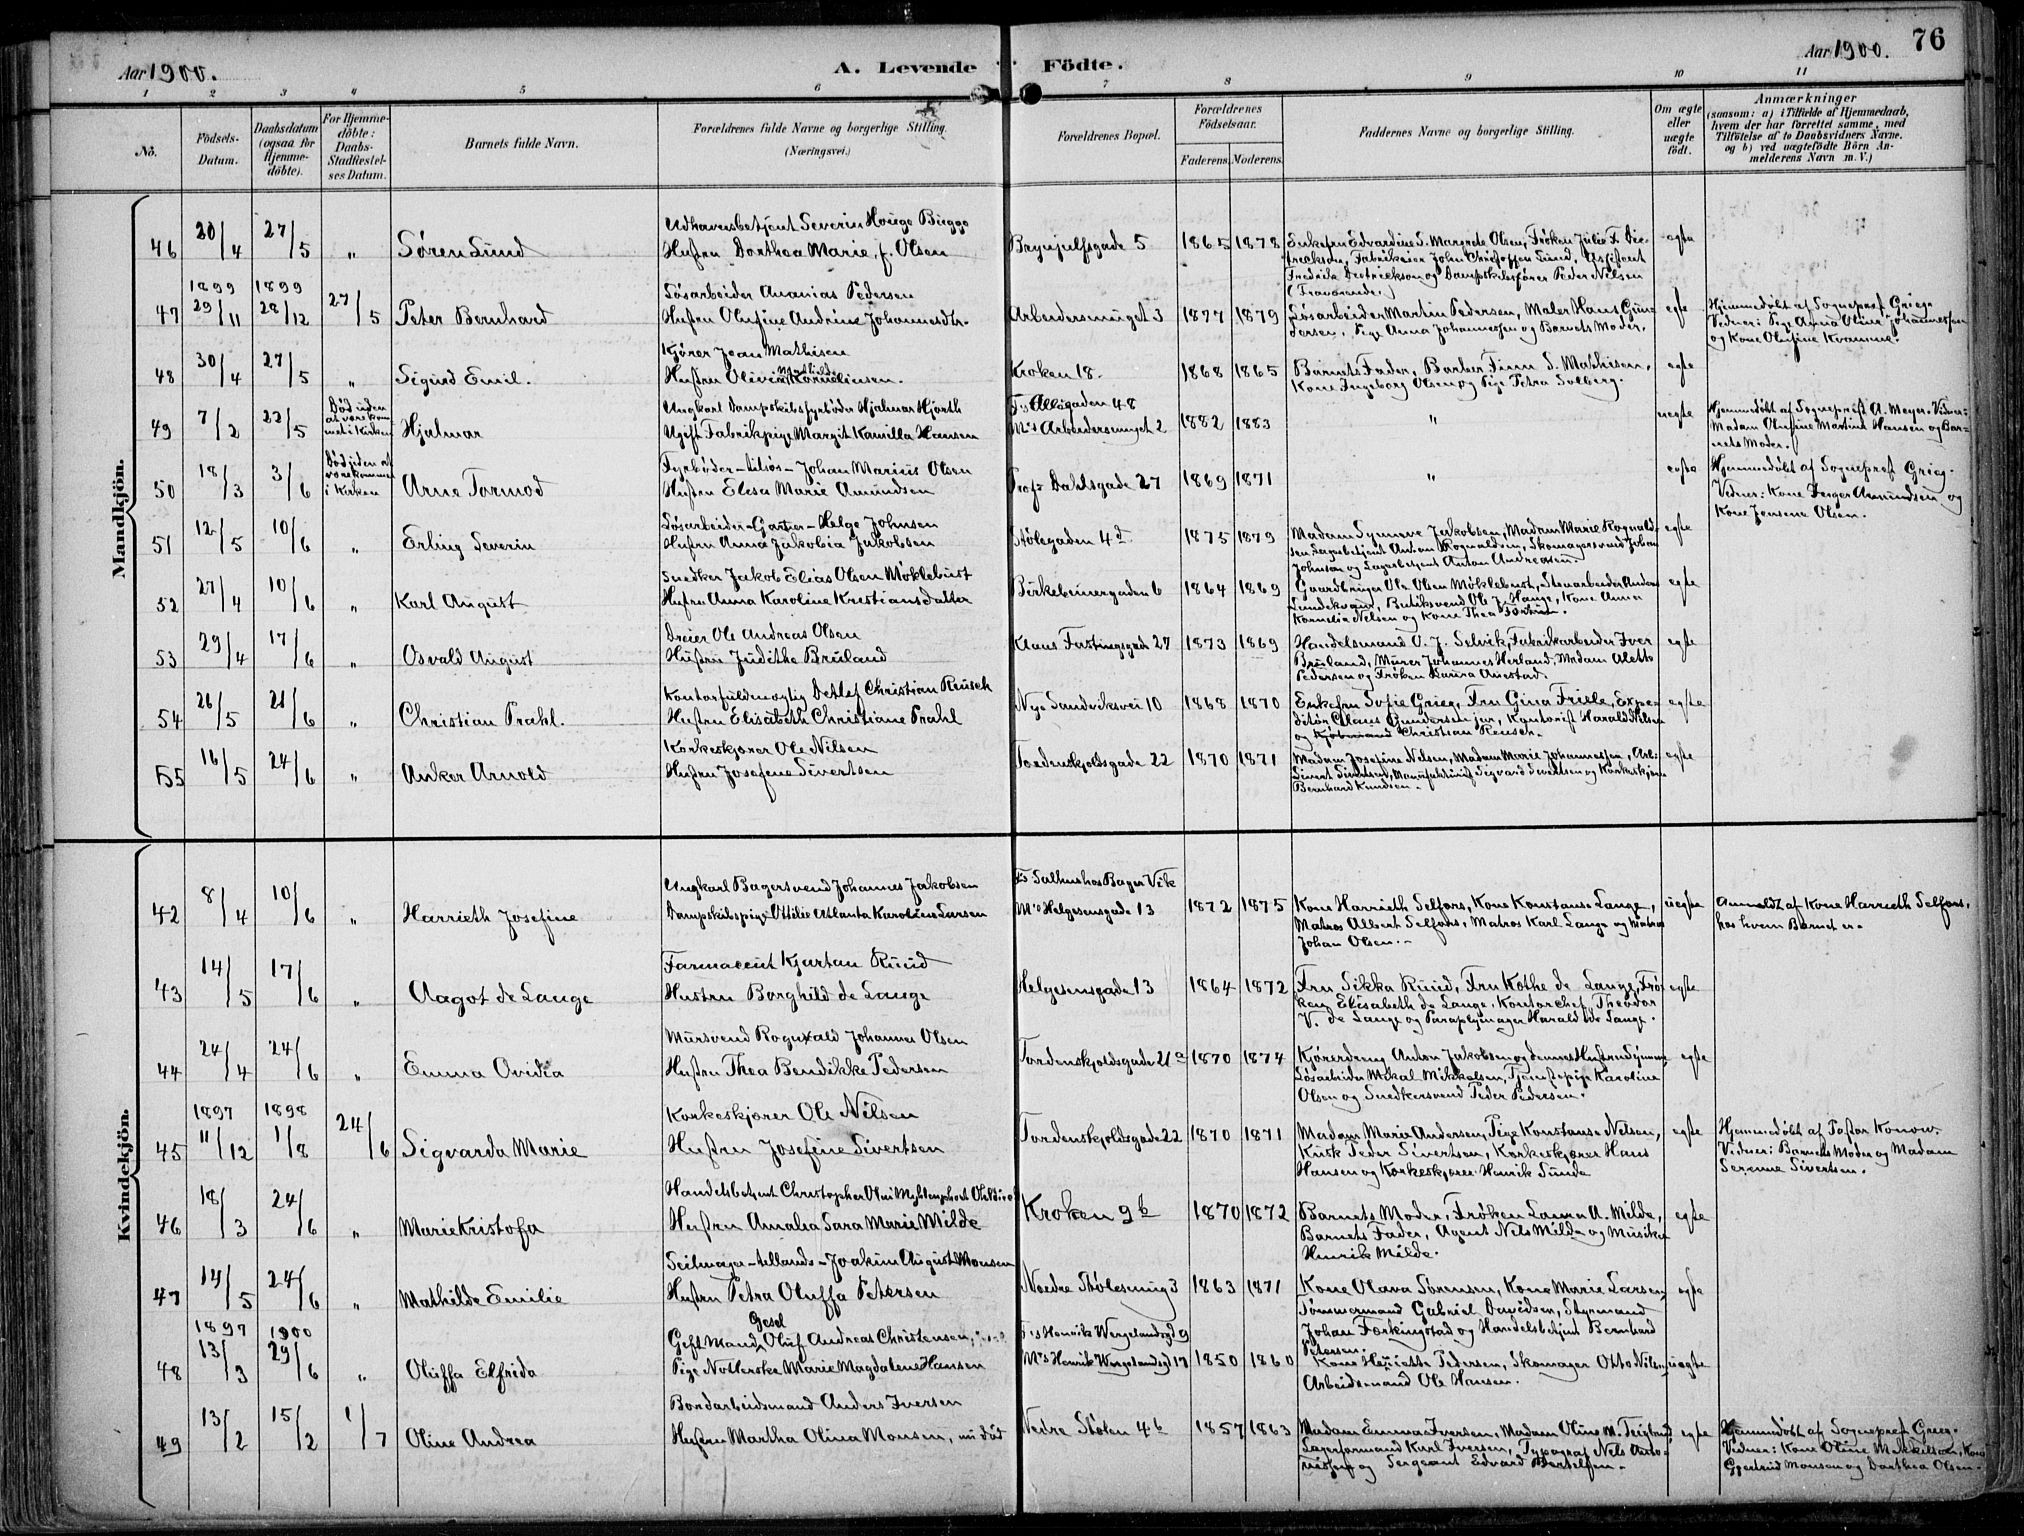 Aar 1900.
A. Levende Födte.
Aar 1900.
76
1 2 3 4 5 6 7 8 9 10 11
No.
Födsels-Datum.
Daabsdatum (ogsaa for Hjemmedöbte).
For Hjemmedöbte: Daabs-Stadfæstelses Datum.
Barnets fulde Navn.
Forældrenes fulde Navne og borgerlige Stilling.
(Næringsvei.)
Forældrenes Bopæl.
Forældrenes Födselsaar.
Faderens. Moderens.
Faddernes Navne og borgerlige Stilling.
Om ægte eller uægte födt.
Anmærkninger
(saasom: a) i Tilfælde af Hjemmedaab, hvem der har forrettet samme, med Tilföielse af to Daabsvidners Navne, og b) ved uægtefödte Börn Anmelderens Navn m. V.)
Mandkjön.
46 20/4 27/5 " Søren Lund
Severin Hauge
Hustru Dorthea Marie, f. Olsen
Brynjulfsgade 5 1865 1878
Enkefru Edvardine S. Margrete Olsen, Frøken Julie F.
Fabrikeier John Christoffer Lund, Assistent
Fredrik Diedrickson og Dampskibsfører Peder Nilsen
(Fraværende)
egte
47 1899 29/11 1899 28/12 27/5 Peter Bernhard
Løsarbeider Ananias Pedersen
Hustru Olufine Andrine Johannesdtr.
Arbeidersmuget 3 1877 1879
Løsarbeider Martin Pedersen, Maler Hans Gun-
dersen, Pige Anna Johannessen og Barnets Moder.
egte
Hjemmedøbt af Sogneprest Grieg.
Vidner: Pige Anna Oline Johannessen
og Kone Olufine Kvamme.
48 30/4 27/5 " Sigurd Emil.
Kjører Joan Mathisen
Hustru Olivia Mathilde Korneliusen.
Kroken 18. 1868 1865
Barnets Fader, Barber Finn S. Mathisen,
Kone Ingeborg Olsen og Pige Petra Solberg.
egte
49 7/2 22/5 Død uden at være kommet i Kirken Hjalmar
Ungkarl Dampskibsfyrbøder Hjalmar Hjorth
Ugift Fabrikpige Margit Kamilla Hansen
F's Allégaden 48
M's Arbeidersmuget 2 1882 1883
"
uegte
Hjemmedøbt af Sogneprest A. Meyer. Vidner:
Madam Olufine Martine Hansen og Bar-
nets Moder.
50 18/3 3/6 Død uden at være kommet i Kirken Arne Tormod
Fyrbøder -tilsøs- Johan Marius Olsen
Hustru Elise Marie Amundsen
Profs Dahlsgade 27 1869 1871
"
egte
Hjemmedøbt af Sogneprest Grieg.
Vidner: Kone Amundsen og
Kone Jensine Olsen.
51 12/5 10/6 " Erling Severin
Løsarbeider-Gartner- Helge Johnsen
Hustru Anna Jakobia Jakobsen
Stølegaden 4d 1875 1879
Madam Synneve Jakobsen, Madam Marie Rognald-
sen, Lagerbetjent Anton Rognaldsen, Skomagersvend Johan
Johnsen og Lagerbetjent Anton Andreasen.
egte
52 27/4 10/6 " Karl August
Snedker Jakob Elias Olsen Møklebust
Hustru Anna Karoline Kristiansdatter
Birkebeinergaden 6 1864 1869
Gaardbruger Ole Olsen Møklebust, Stenarbeider Anders
Lundekvam, Butiksvend Ole J. Hauge, Kone Anna
Kornelia Nelsen og Kone Thea
egte
53 29/4 17/6 " Osvald August
Dreier Ole Andreas Olsen
Hustru Judithe Bruland
Klaus Fastingsgade 27 1873 1869
Handelsmand O. J. Selvik, Fabrikarbeider Iver
Bruland, Murer Johannes Herland, Madam Alette
Pedersen og Frøken Laura Anestad.
egte
54 26/5 21/6 " Christian Prahl.
Kontorfuldmægtig Detlef Christian Reusch
Hustru Elisabeth Christiane Prahl
Nye Sandviksvei 10 1868 1870
Enkefru Sofie Grieg, Fru Gina Friele, Expe-
ditør Claus Gundersen jun., Kontorist Harald Nilsen
og Kjøbmand Christian Reusch.
egte
55 16/5 24/6 " Anker Arnold
Korkeskjærer Ole Nilsen
Hustru Josefine Sivertsen
Tordenskjoldsgade 22 1870 1871
Madam Josefine Nelsen, Madam Marie Johannessen, Arb.
Sivert Sivertsen, Manufakturist Sigvard Sivertsen og Korkeskjærer
Bernhard Knudsen.
egte
Kvindekjön.
42 8/4 10/6 " Harrieth Josefine
Ungkarl Bagersvend Johannes Jakobsen
Dampskibspige Ottilie Atlanta Karoline Larsen
Fs Salhus hos Bager Vik
M's Helgesensgade 13 1872 1875
Kone Harrieth Selfors, Kone Konstanse Lange,
Matros Albert Selfors, Matros Karl Lange og Matros
Johan Olsen.
uegte
Anmeldt af Kone Harrieth Selfors,
hos hvem Barnet er.
43 14/5 17/6 " Aagot de Lange
Farmaceut Kjartan Ruud
Hustru Borghild de Lange
Helgesensgade 13 1864 1872
Fru Sikka Ruud, Fru Kathe de Lange, Frø-
ken Elisabeth de Lange, Kontorchef Theodor
V. de Lange og Paraplymager Harald de Lange.
egte
44 24/4 24/6 " Emma Ovidia
Mursvend Rognvald Johannes Olsen
Hustru Thea Bendikke Pedersen
Tordenskjoldsgade 21a 1870 1874
Kjørerdreng Anton Jakobsen og dennes Hustru Synneve,
Løsarbeider Mikal Mikkelsen, Tjenestepige Karoline
Olsen og Snedkersvend Peder Pedersen.
egte
45 1897 11/12 1898 1/8 24/6 Sigvarda Marie
Korkeskjærer Ole Nilsen
Hustru Josefine Sivertsen
Tordenskjoldsgade 22 1870 1871
Madam Marie Andersen, Pige Konstanse Nelsen,
Kusk Peder Sivertsen, Korkeskjærer Hans
Hansen og Korkeskjærer Henrik Lunde
egte
Hjemmedøbt af Pastor Konow.
Vidner: Barnets Moder og Madam
Serenne Sivertsen.
46 18/3 24/6 " Marie Kristofa
Handelsbetjent Christopher
Hustru Amalia Sara Marie Milde
Kroken 9b 1870 1872
Barnets Moder, Frøken Laura A. Milde,
Barnets Fader, Agent Nels Milde og Musiker
Henrik Milde.
egte
47 14/5 24/6 " Mathilde Emilie
Seilmager -tillands- Joakim August Monsen
Hustru Petra Oluffa Petersen
Nedre Stølesmug 3 1863 1871
Kone Olava Sørensen, Kone Marie Larsen,
Tømmermand Gabriel Davidsen, Styrmand
Johan Førkingstad og Handelsbetjent Bernhard
Petersen.
egte
48 1897 13/3 1900 29/6 " Oluffa Elfrida
Gift Mand, Gesel Oluf Andreas Christensen,
Pige Notlerske Marie Magdalene Hansen
F's Henrik Wergelandsgd 9
M's Henrik Wergelandsgd 17 1850 1860
Kone Henriette Pedersen, Skomager Otto Nilsen
Arbeidsmand Ole Hansen.
uegte
49 13/2 15/2 1/7 Oline Andrea
Bordarbeidsmand Anders Iversen
Hustru Martha Olina Monsen, nu død
Nedre Stølen 4b 1857 1863
Madam Emma Iversen, Madam Oline M. Teigland
Lagerformand Karl Iversen, Typograf Nels
og Sergeant Edvard Bertelsen.
egte
Hjemmedøbt af Sogneprest Grieg.
Vidner: Kone Oline Mikkelsen, Kone
Gjertrud Monsen og Dorthea Olsen.